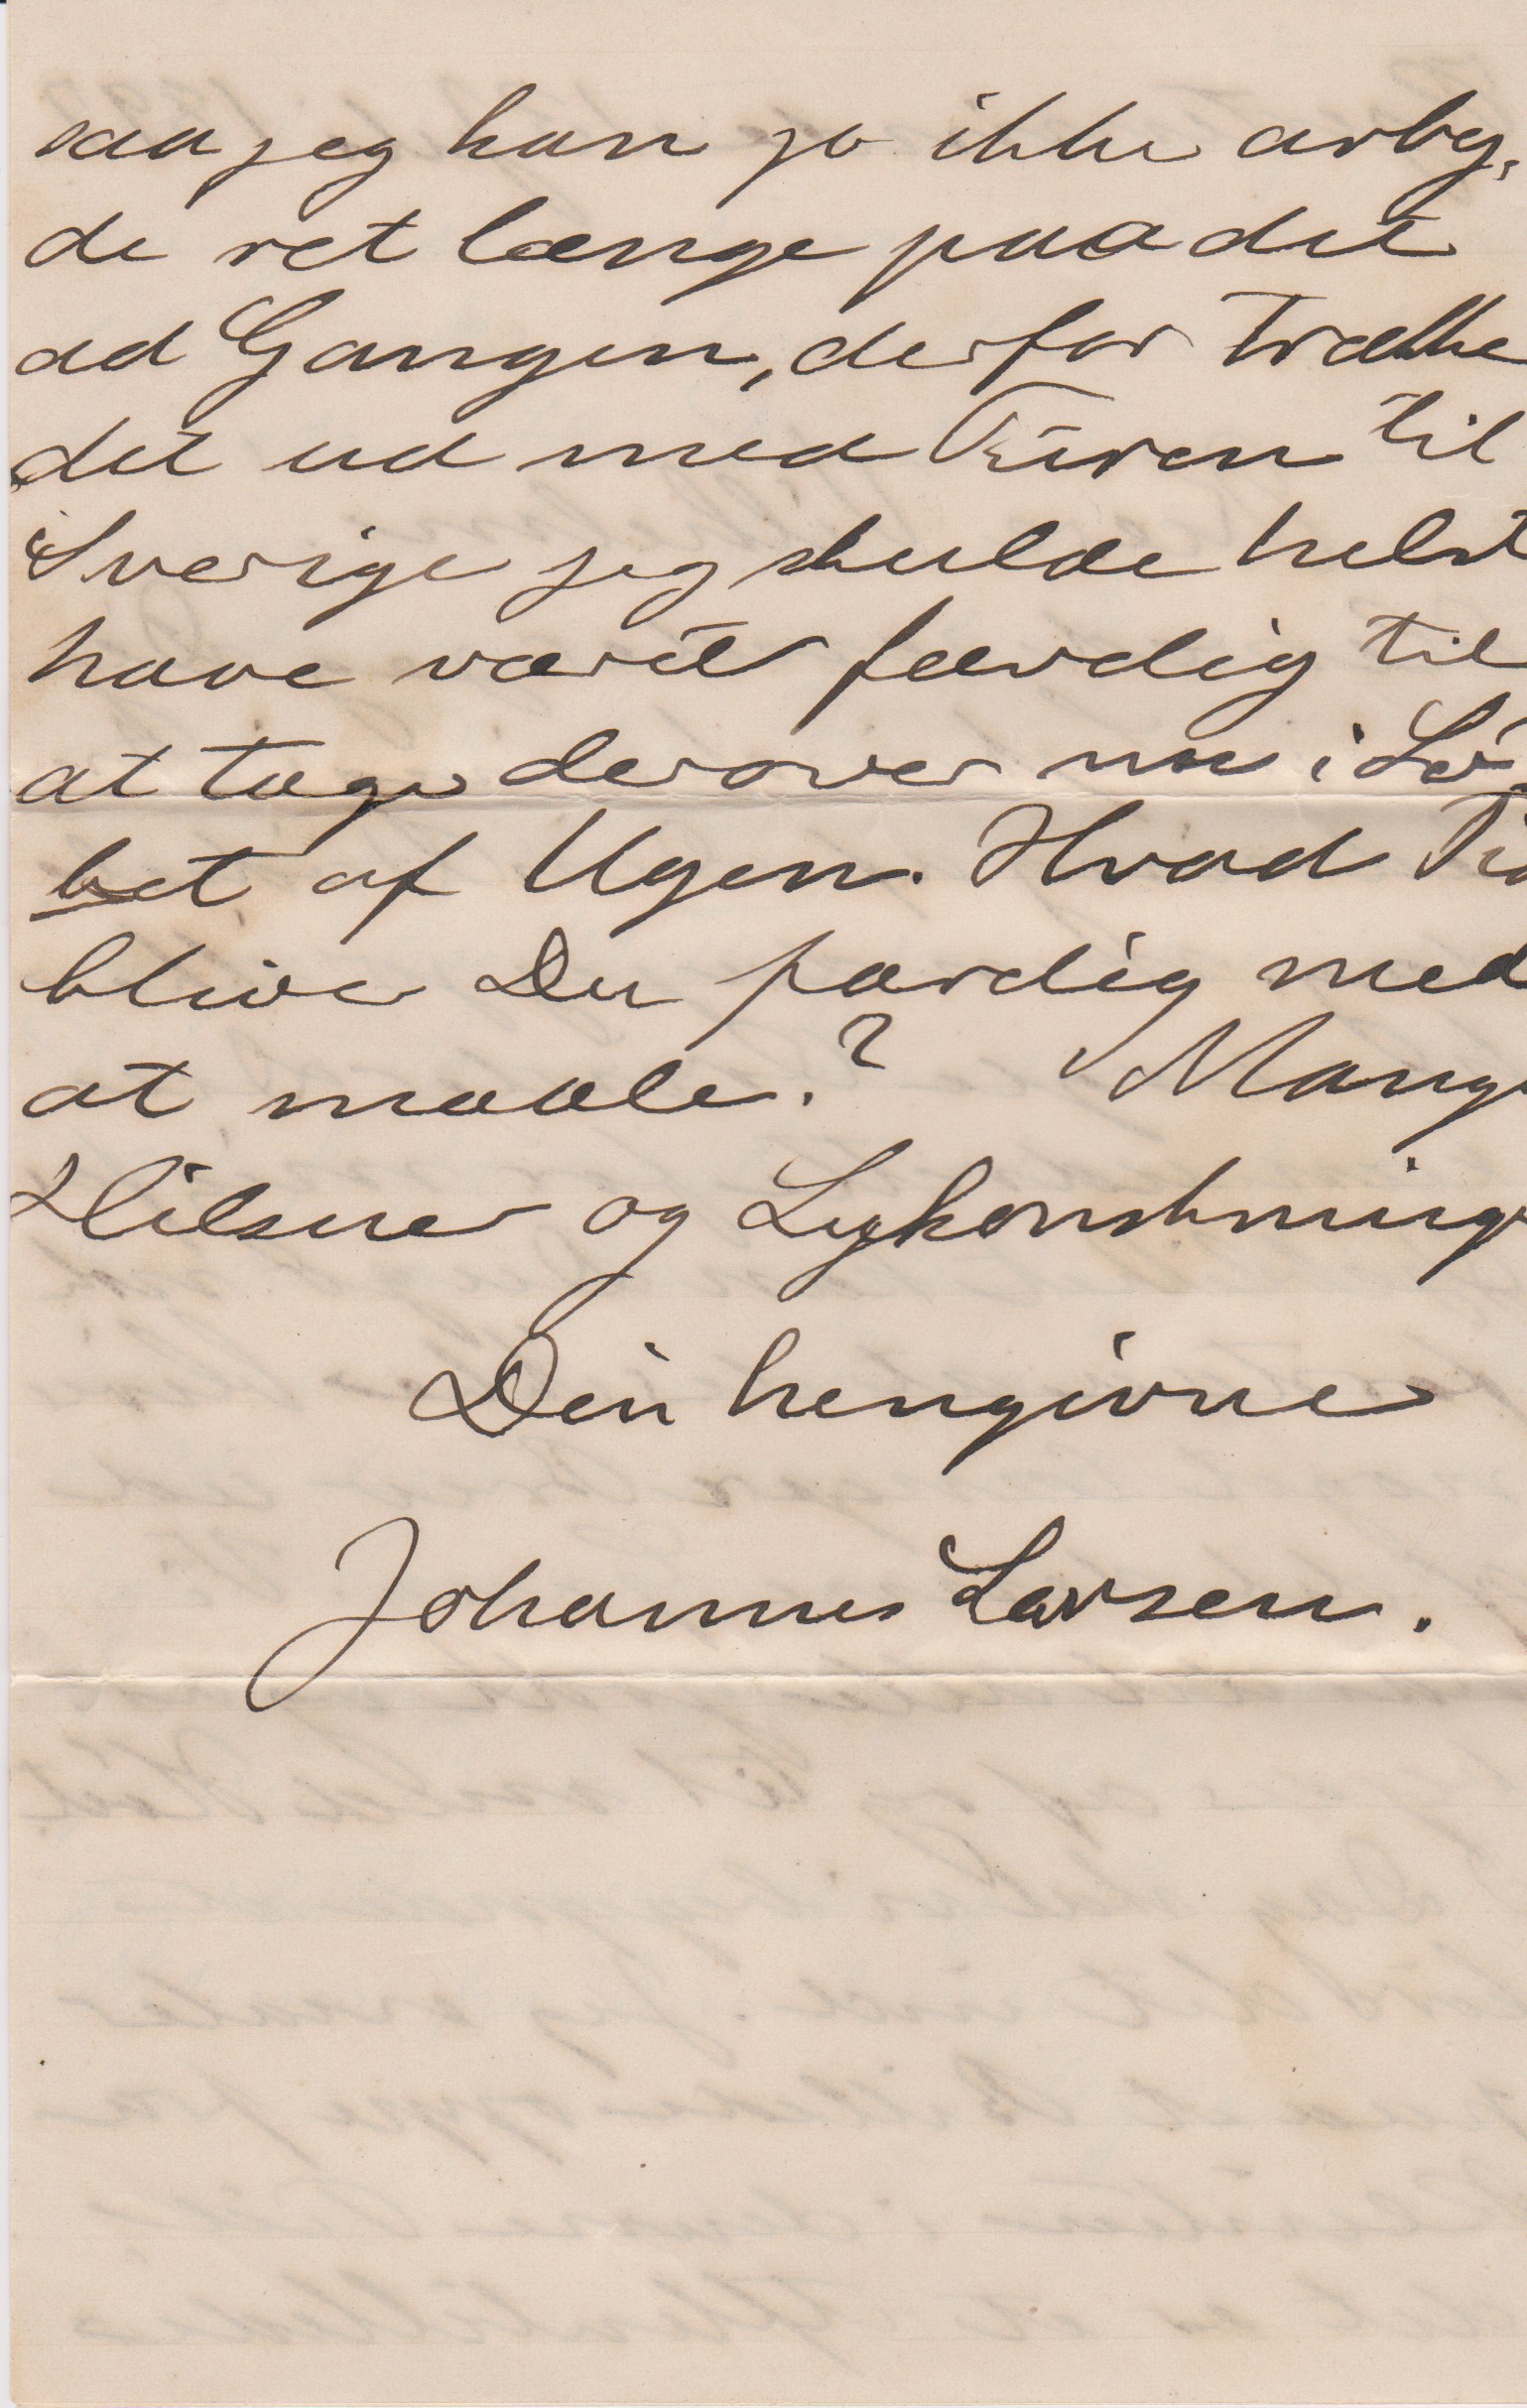 saa jeg kan jo ikke arbej-
de ret længe paa det
ad Gangen, derfor Trække
det ud med Turen til
Sverige jeg skulde helst
have været færdig til
at tage derover nu i Lø-
bet af Ugen. Hvad Tid
bliver Du færdig med
at maale.? Mange
Hilsner og Lykønskninger
Din hengivne
Johannes Larsen.